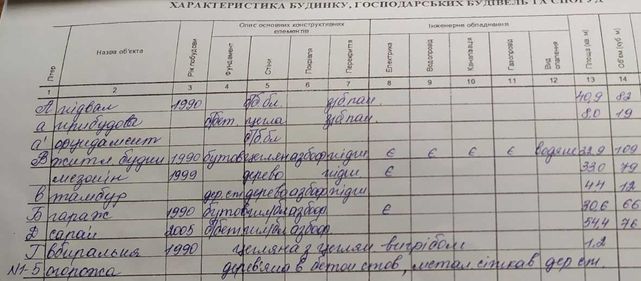 ХАРАКТЕРИСТИКА БУДИНКУ, ГОСПОДАРСЬКИХ БУДІВЕЛЬ ТА СПОРУД
Літер Назва об'єкта Рік побудови Опис основних конструктивних елементів Інженерне обладнання Площа (кв. м) Об'єм (куб. м)
Фундамент Стіни Покрівля Перекриття Електрика Водопровід Каналізація Газопровід Вид опалення
1 2 3 4 5 6 7 8 9 10 11 12 13 14
А підвал 1990 з/б.бл. з/б пан. 40,9 82
а прибудова з/бет. цегла з/б пан. 8,0 19
а' фундамент з/б.бл.
В житл. будин 1990 бутов цеглян азбоф підши є є є є водяне 32,9 109
мезонін 1999 дерево підши є 33,0 79
в тамбур дер.ст дерево азбоф підши 4,4 12
Б гараж 1990 бутов азбоф є 30,6 66
Д сарай 2005 з/бет азбоф 54,4 76
Г вбиральня 1990 цегляна з цеглян вигрібом 1,2
N1-5 огорожа дерев'яна в бетон стов, метал. сітка в дер ст.